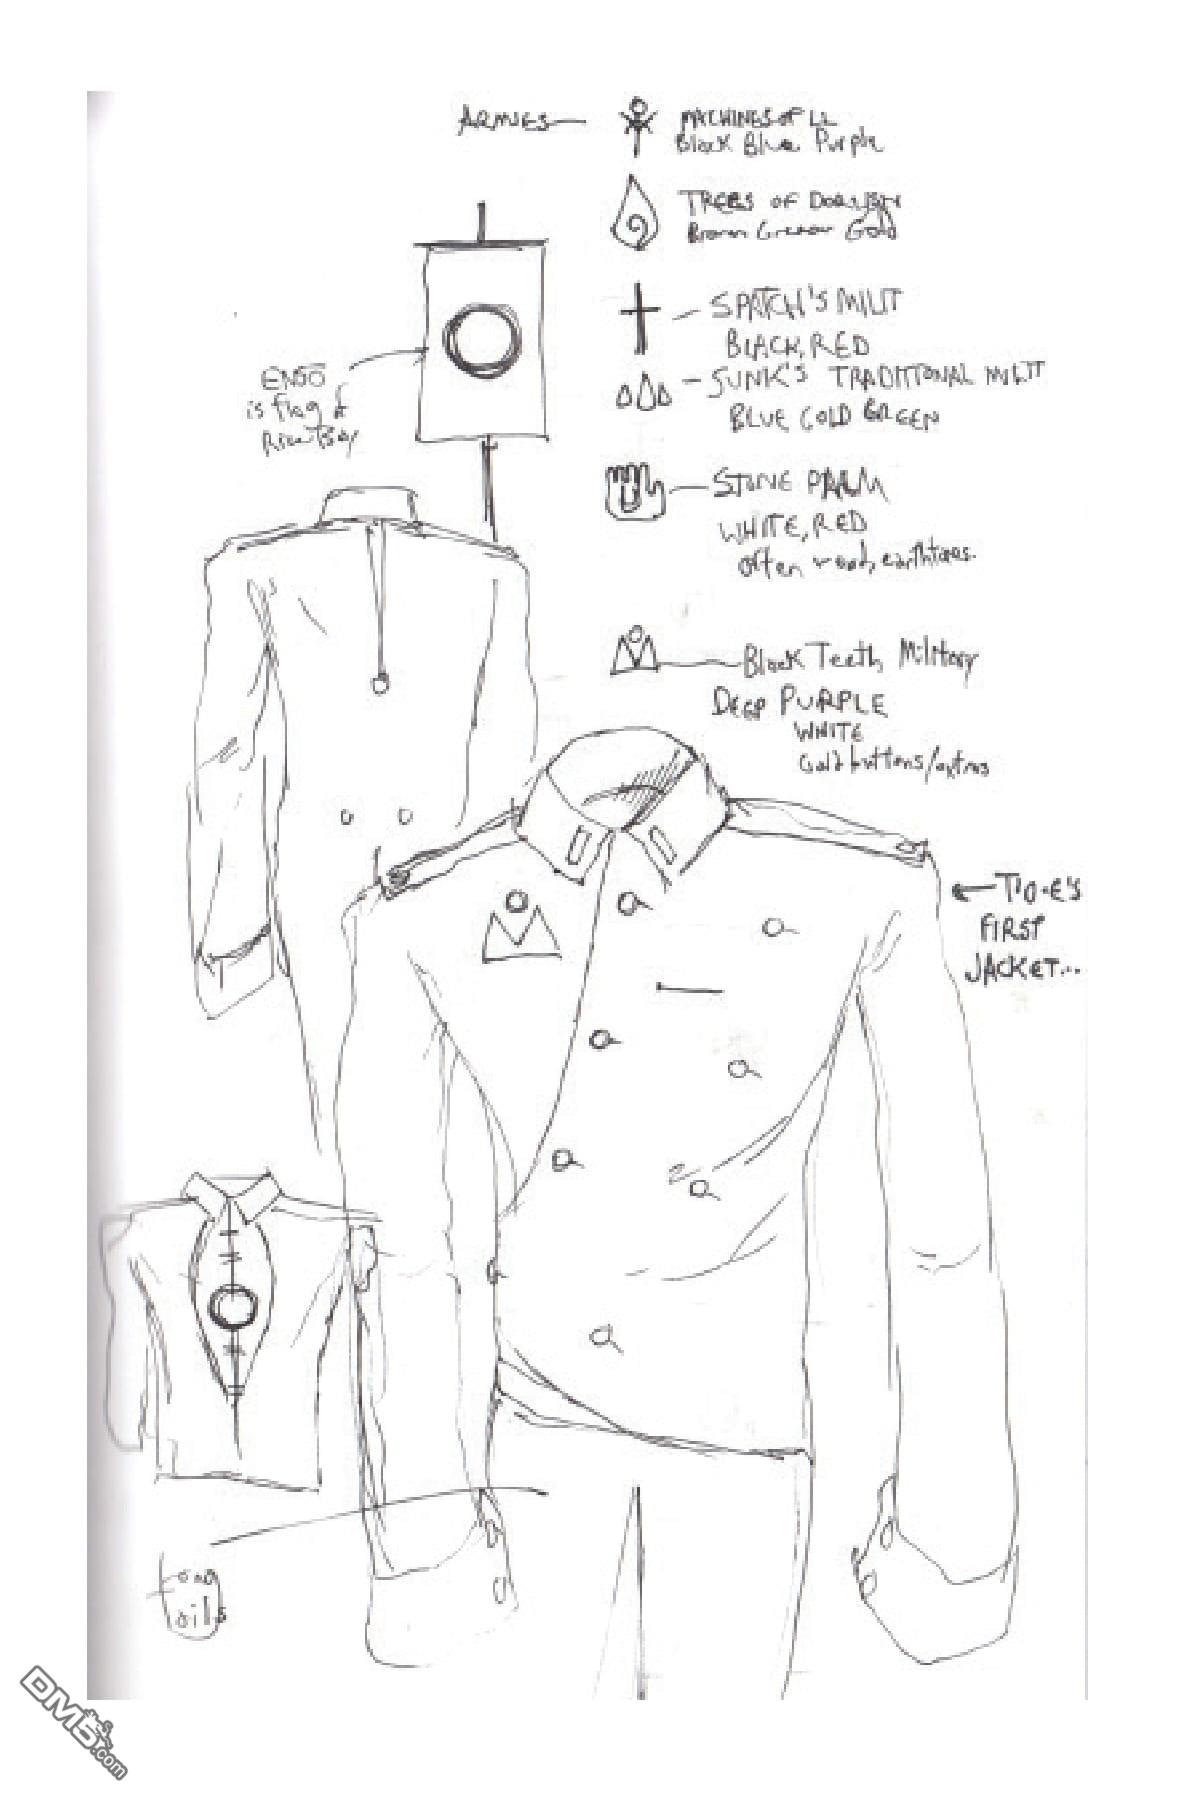 ARMIES
MACHINES OF LL
Black Blue Purple
TREES OF
Brown Green Gold
SPATCH'S MILIT
BLACK, RED
ENSO
is flag of
SUNK'S TRADITIONAL MILIT
BLUE GOLD GREEN
STONE PALM
WHITE, RED
often earthtones.
Black Teeth Military
DEEP PURPLE
WHITE
Gold buttons/extras
TIO-E'S
FIRST
JACKET...
DMB.com